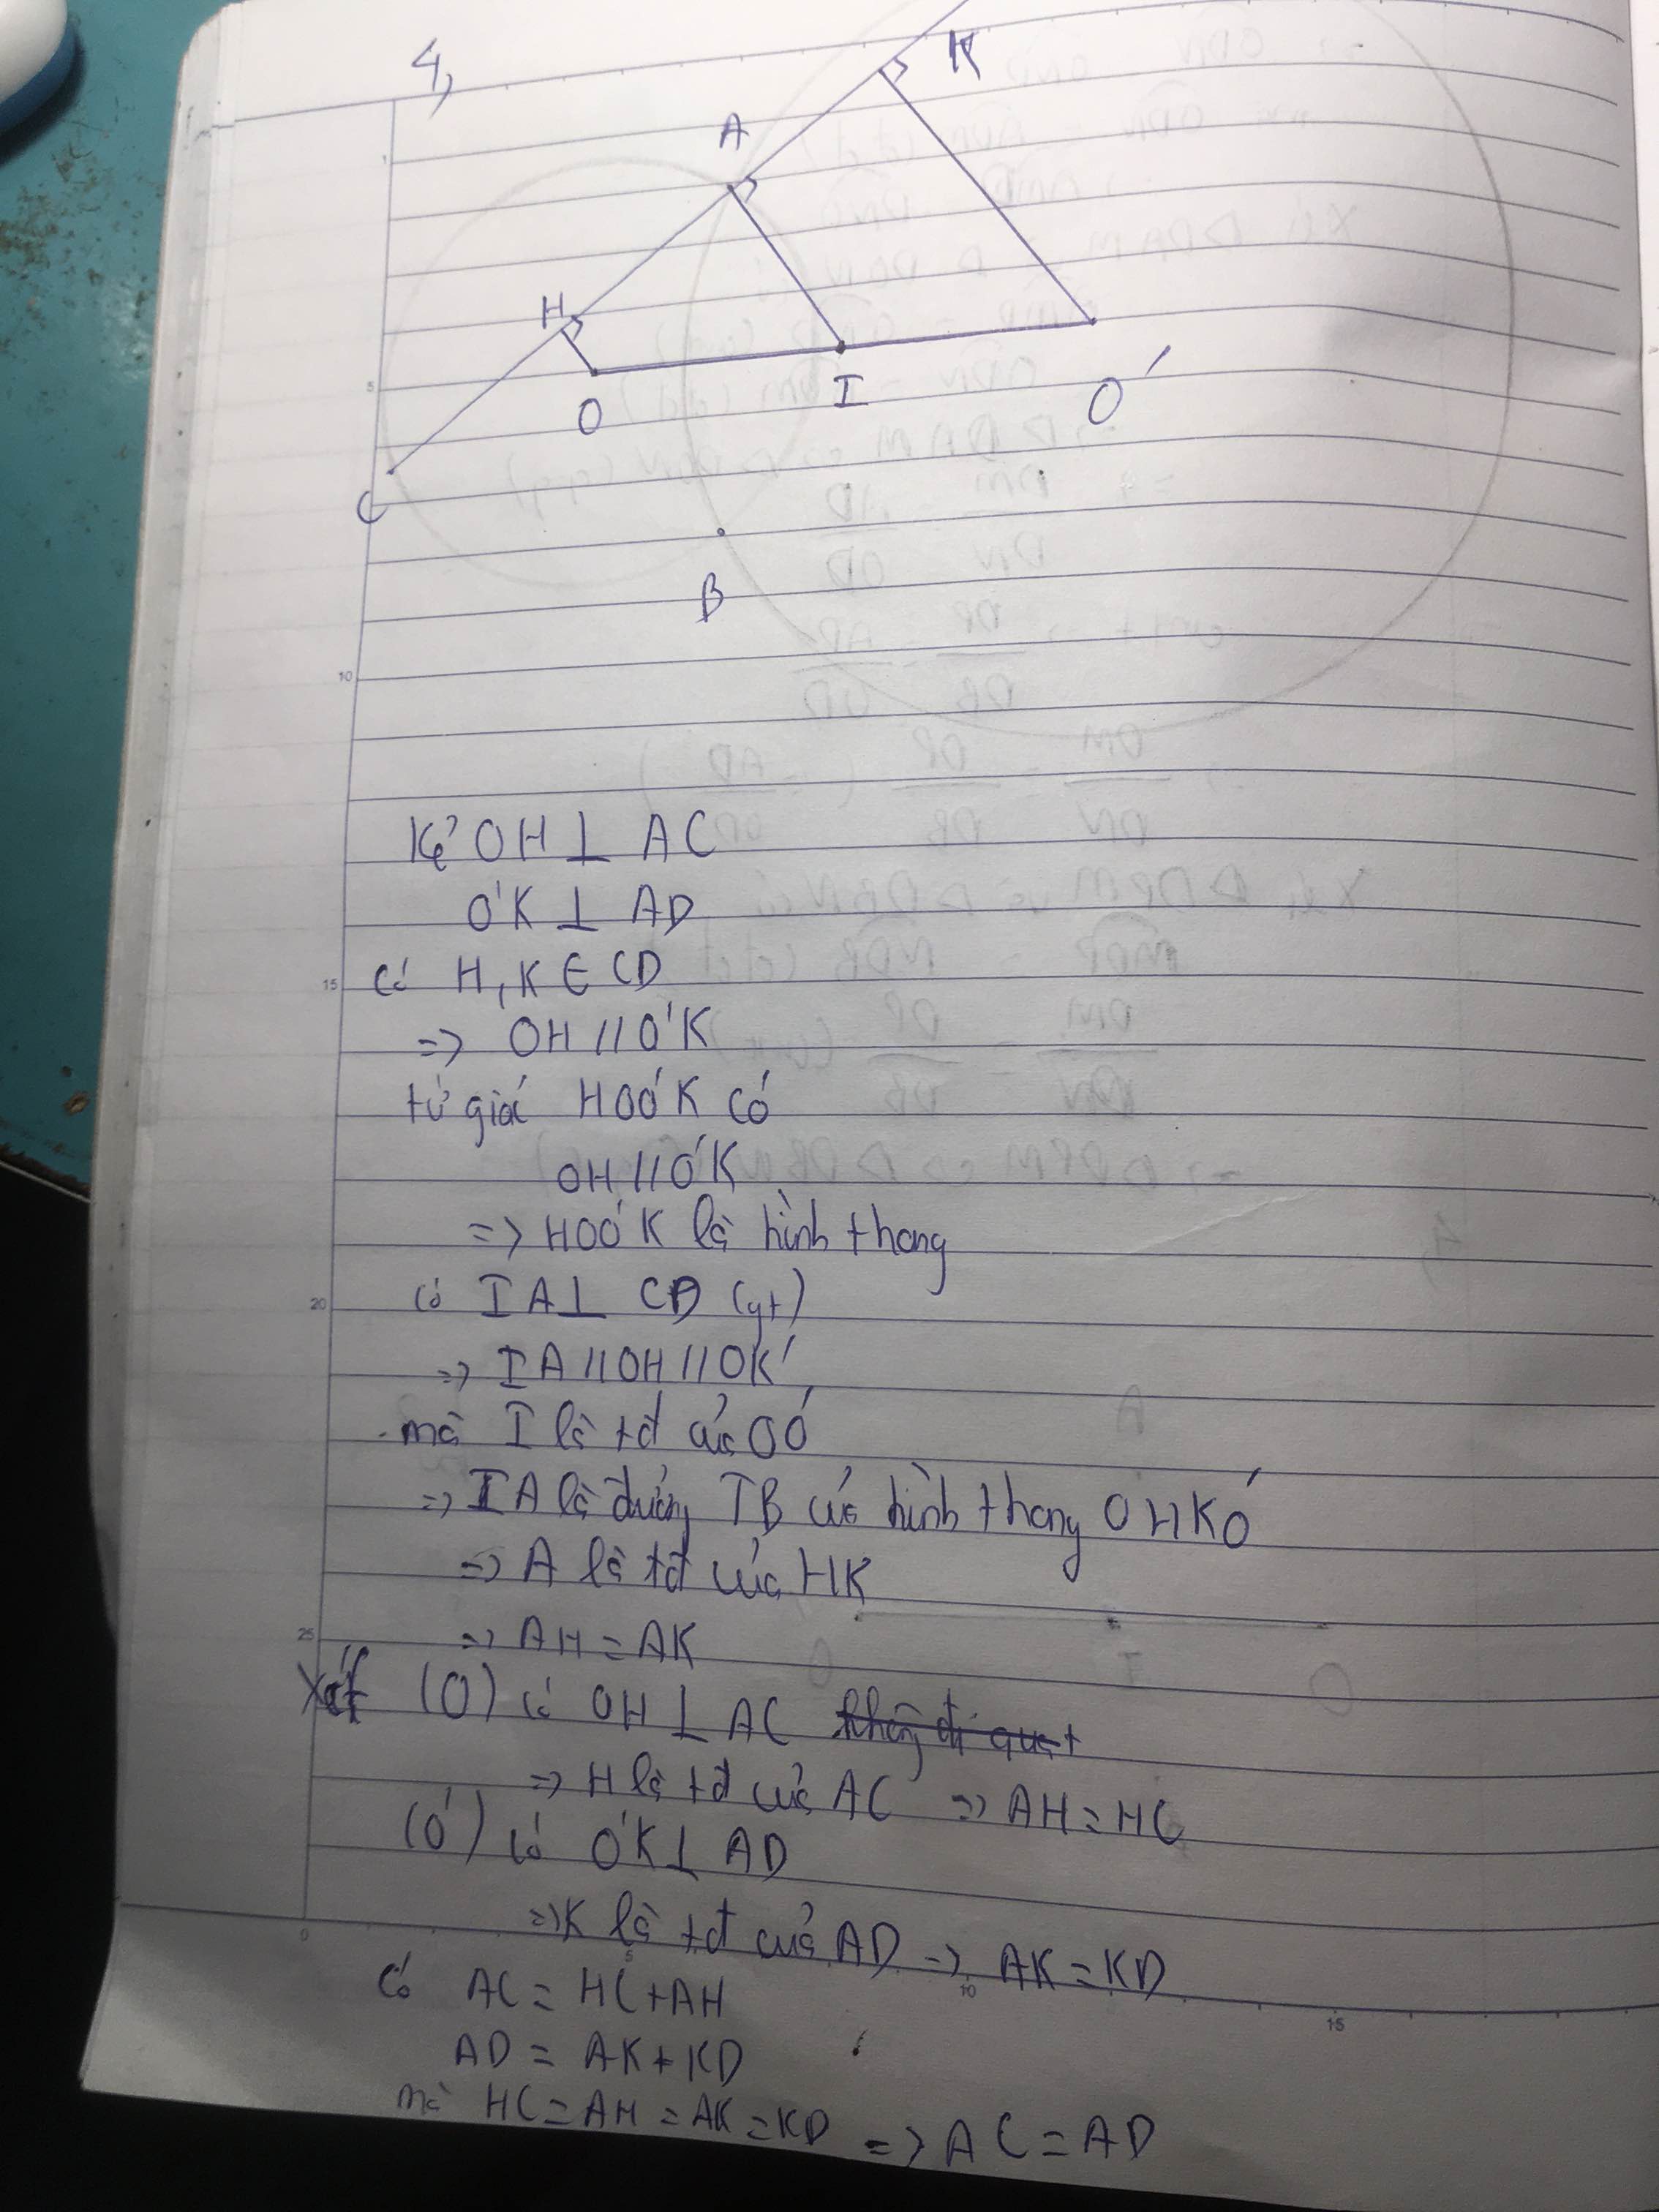 4,
K
A
H
O
I
O'
C
B
5
10
Kẻ OH ⊥ AC
O'K ⊥ AD
15
có H, K ∈ CD
=> OH // O'K
tứ giác HOO'K có
OH // O'K
=> HOO'K là hình thang
20
có IA ⊥ CD (gt)
=> IA // OH // OK'
mà I là tđ của OO'
=> IA là đường TB của hình thang OHKO'
=> A là tđ của HK
25
=> AH = AK
Xét (O) có OH ⊥ AC
=> H là tđ của AC => AH = HC
(O') có O'K ⊥ AD
=> K là tđ của AD => AK = KD
0 5 10 15
Có AC = HC + AH
AD = AK + KD
mà HC = AH = AK = KD => AC = AD